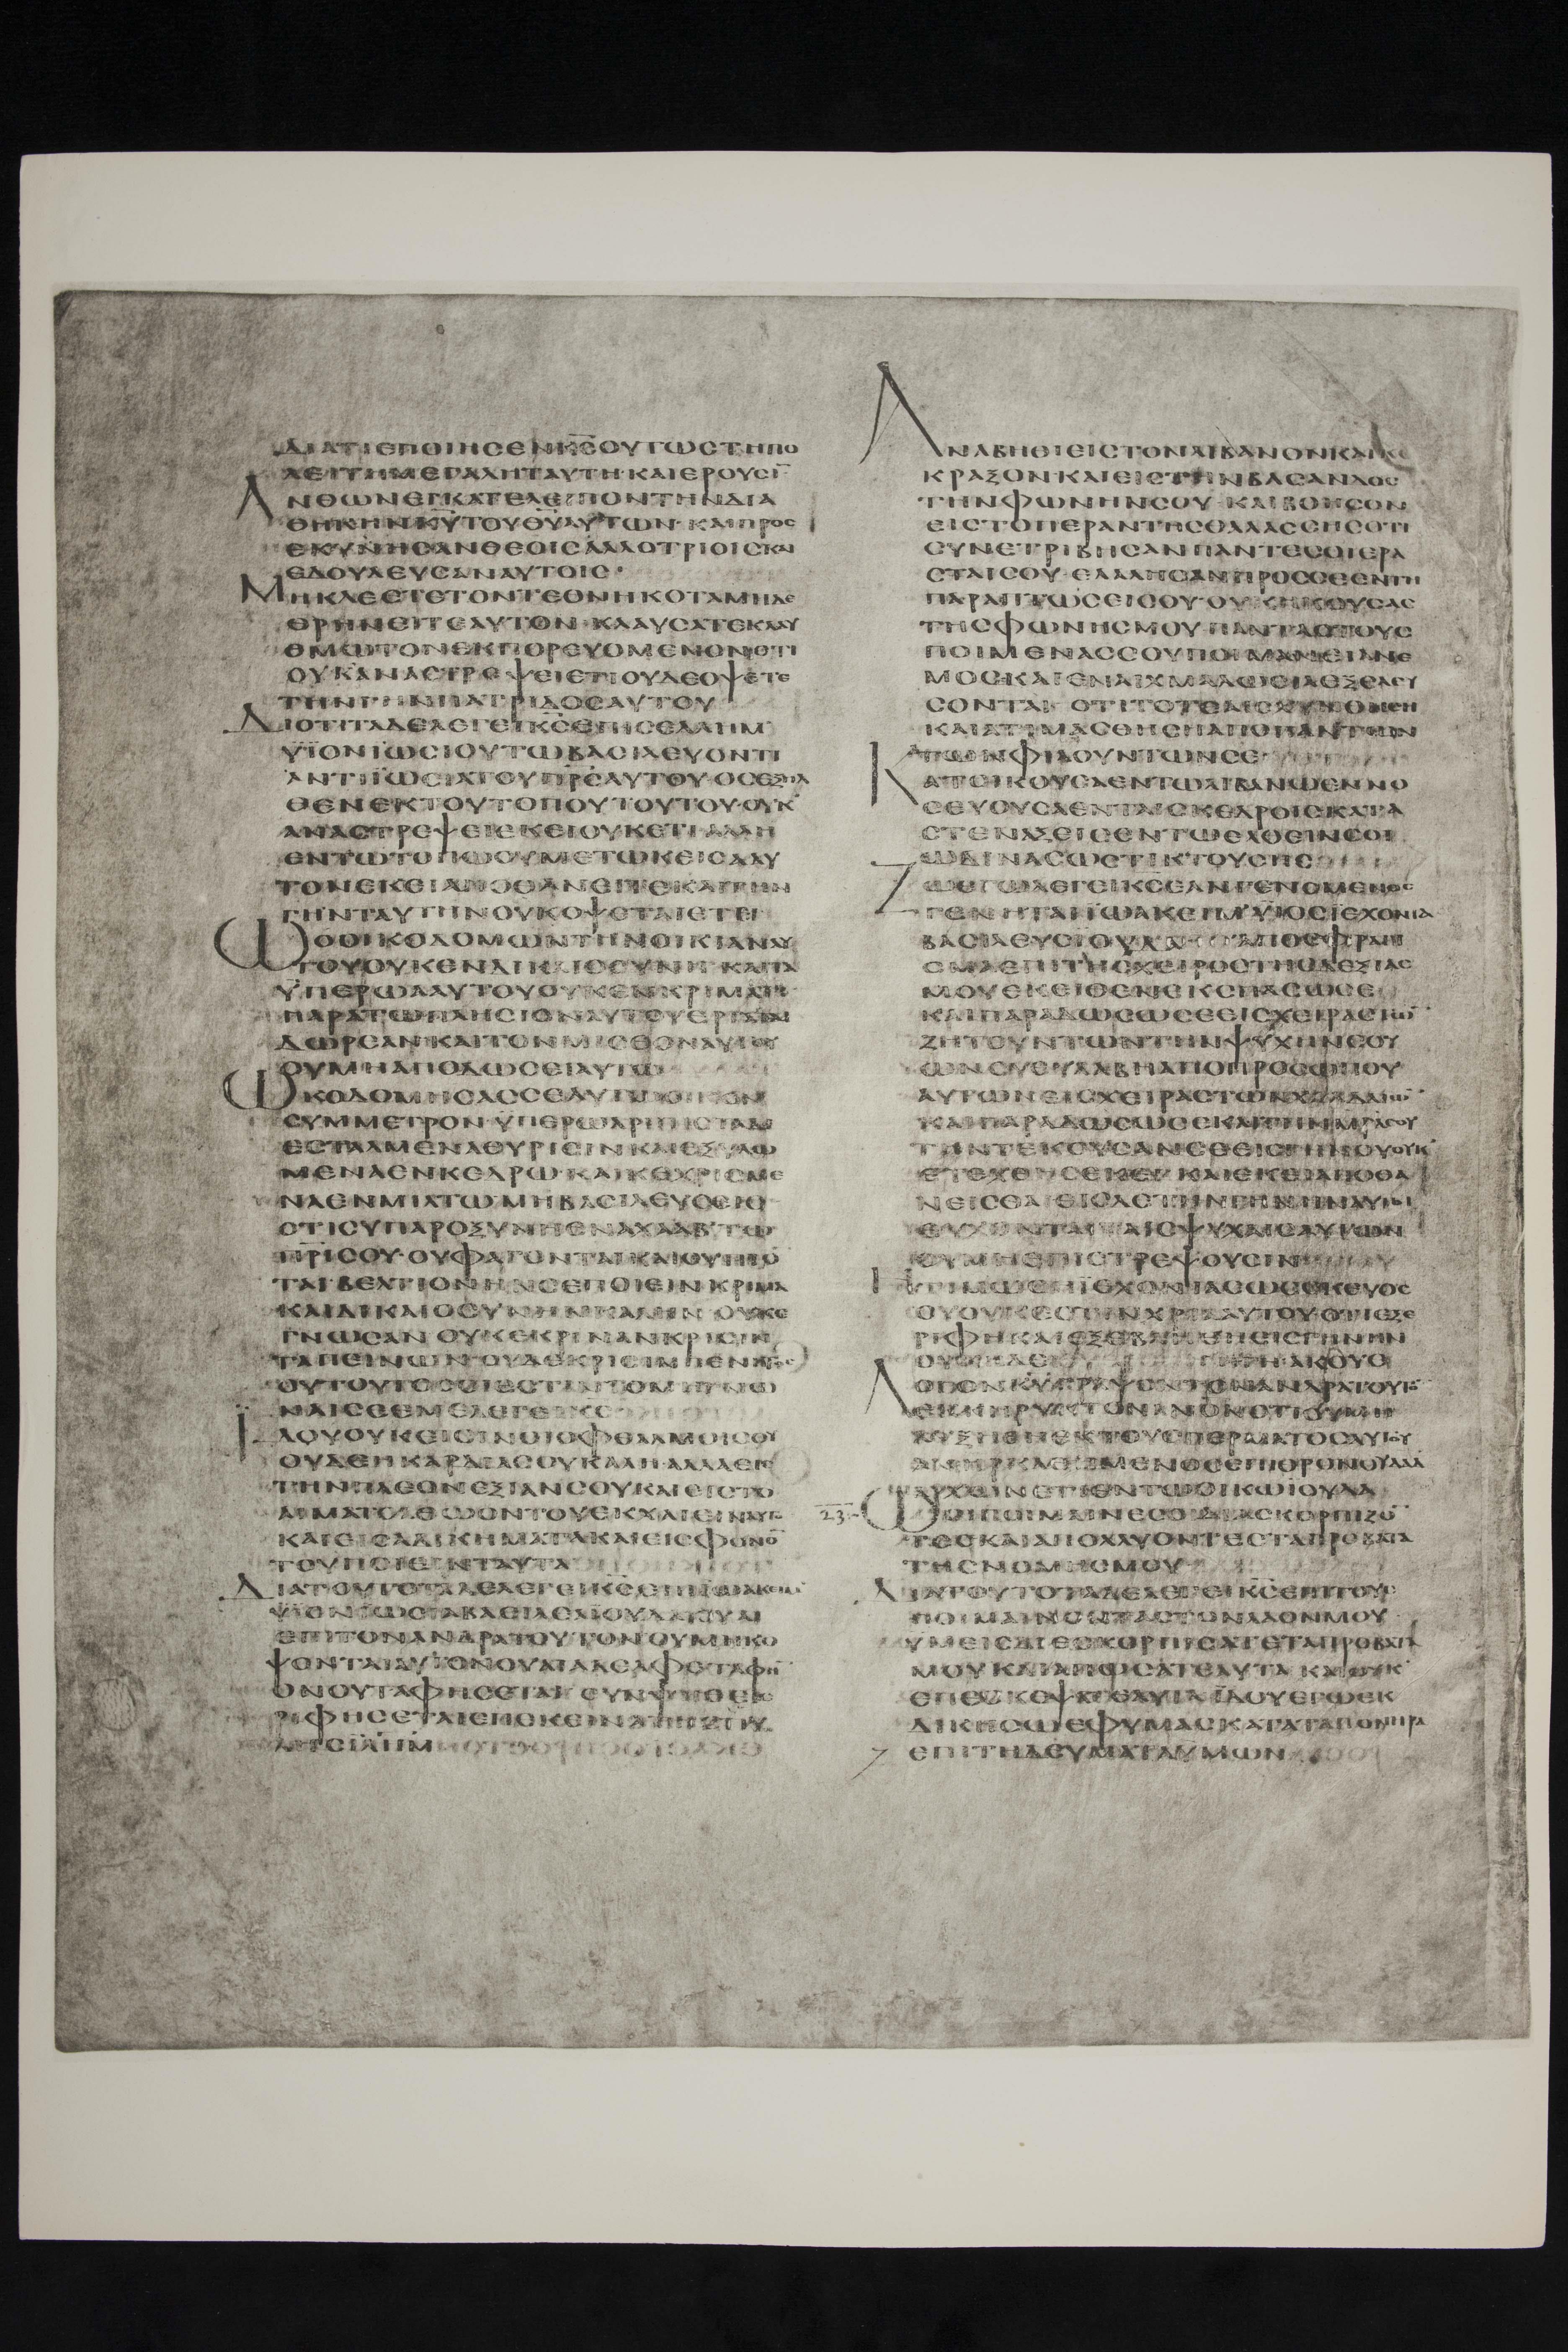 ΔΙΑΤΙΕΠΟΙΗΣΕΝΚ̅Σ̅ΟΥΤΩΣΤΗΠΟ
ΛΕΙΤΗΜΕΓΑΛΗΤΑΥΤΗ·ΚΑΙΕΡΟΥΣΙ̅
ΑΝΘΩΝΕΓΚΑΤΕΛΕΙΠΟΝΤΗΝΔΙΑ
ΘΗΚΗΝΚ̅Υ̅ΤΟΥΘ̅Υ̅ΑΥΤΩΝ·ΚΑΙΠΡΟΣ
ΕΚΥΝΗΣΑΝΘΕΟΙΣΑΛΛΟΤΡΙΟΙΣΚΑΙ
ΕΔΟΥΛΕΥΣΑΝΑΥΤΟΙΣ·
ΜΗΚΛΕΕΤΕΤΟΝΤΕΘΝΗΚΟΤΑΜΗΔΕ
ΘΡΗΝΕΙΤΕΑΥΤΟΝ·ΚΛΑΥΣΑΤΕΚΛΑΥ
ΘΜΩΤΟΝΕΚΠΟΡΕΥΟΜΕΝΟΝΟΤΙ
ΟΥΚΑΝΑΣΤΡΕΨΕΙΕΤΙΟΥΔΕΟΨΕΤΕ
ΤΗΝΓΗΝΠΑΤΡΙΔΟΣΑΥΤΟΥ
ΔΙΟΤΙΤΑΔΕΛΕΓΕΙΚ̅Σ̅ΕΠΙΣΕΛΛΗΜ
ΥΪΟΝΪΩΣΙΟΥΤΩΒΑΣΙΛΕΥΟΝΤΙ
ΑΝΤΙΪΩΣΙΑΤΟΥΠ̅Ρ̅Σ̅ΑΥΤΟΥ·ΟΣΕΞΗΛ
ΘΕΝΕΚΤΟΥΤΟΠΟΥΤΟΥΤΟΥ·ΟΥΚ
ΑΝΑΣΤΡΕΨΕΙΕΚΕΙΟΥΚΕΤΙΑΛΛΗ
ΕΝΤΩΤΟΠΩΟΥΜΕΤΩΚΕΙΣΑΑΥ
ΤΟΝΕΚΕΙΑΠΟΘΑΝΕΙΤΕΚΑΙΤΗΝ
ΓΗΝΤΑΥΤΗΝΟΥΚΟΨΕΤΑΙΕΤΕΙ
ΩΟΟΙΚΟΔΟΜΩΝΤΗΝΟΙΚΙΑΝΑΥ
ΤΟΥΟΥΚΕΝΔΙΚΑΙΟΣΥΝΗ·ΚΑΙΤΑ
ΥΠΕΡΩΑΑΥΤΟΥΟΥΚΕΝΚΡΙΜΑΤΙ·
ΠΑΡΑΤΩΠΛΗΣΙΟΝΑΥΤΟΥΕΡΓΑΤΑΙ
ΔΩΡΕΑΝ·ΚΑΙΤΟΝΜΙΣΘΟΝΑΥΤΟΥ
ΟΥΜΗΑΠΟΔΩΣΕΙΑΥΤΩ
ΩΚΟΔΟΜΗΣΑΣΣΕΑΥΤΩΟΙΚΟΝ
ΣΥΜΜΕΤΡΟΝ·ΥΠΕΡΩΑΡΙΠΙΣΤΑΔΙ
ΕΣΤΑΛΜΕΝΑΘΥΡΙΣΙΝΚΑΙΕΞΥΛΩ
ΜΕΝΑΕΝΚΕΔΡΩ·ΚΑΙΚΕΧΡΙΣΜΕ
ΝΑΕΝΜΙΛΤΩΜΗΒΑΣΙΛΕΥΣΕΙΣ
ΟΤΙΣΥΠΑΡΟΞΥΝΗΕΝΑΧΑΑΒΤΩ
Π̅Ρ̅ΙΣΟΥ·ΟΥΦΑΓΟΝΤΑΙΚΑΙΟΥΠΙΟ̅
ΤΑΙΒΕΛΤΙΟΝΗΝΣΕΠΟΙΕΙΝΚΡΙΜΑ
ΚΑΙΔΙΚΑΙΟΣΥΝΗΝΚΑΛΗΝ ΟΥΚΕ
ΓΝΩΣΑΝ ΟΥΚΕΚΡΙΝΑΝΚΡΙΣΙΝ
ΤΑΠΕΙΝΩΝΟΥΔΕΚΡΙΣΙΜΠΕΝΗΤΟΣ
ΟΥΤΟΥΤΟΣΟΙΕΣΤΙΝΤΟΜΗΓΝΩ
ΝΑΙΣΕΕΜΕΛΕΓΕΙΚ̅Σ̅
ΪΔΟΥΟΥΚΕΙΣΙΝΟΙΟΦΘΑΛΜΟΙΣΟΥ
ΟΥΔΕΗΚΑΡΔΙΑΣΟΥΚΑΛΗ·ΑΛΛΑΕΙΣ
ΤΗΝΠΛΕΟΝΕΞΙΑΝΣΟΥΚΑΙΕΙΣΤΟ
ΑΙΜΑΤΟΑΘΩΟΝΤΟΥΕΚΧΑΙΕΙΝΑΥΤΟ
ΚΑΙΕΙΣΑΔΙΚΗΜΑΤΑΚΑΙΕΙΣΦΟΝΟ̅
ΤΟΥΠΟΙΕΙΝΤΑΥΤΑ
ΔΙΑΤΟΥΤΟΤΑΔΕΛΕΓΕΙΚ̅Σ̅ΕΠΙΪΩΑΚΕΙΜ
ΥΪΟΝΪΩΣΙΑΒΑΣΙΛΕΑΪΟΥΔΑΟΥΑΙ
ΕΠΙΤΟΝΑΝΔΡΑΤΟΥΤΟΝΟΥΜΗΚΟ
ΨΟΝΤΑΙΑΥΤΟΝΟΥΑΙΑΔΕΛΦΕΤΑΦΗ̅
ΟΝΟΥΤΑΦΗΣΕΤΑΙ ΣΥΝΨΗΣΘΕΙΣ
ΡΙΦΗΣΕΤΑΙΕΠΕΚΕΙΝΑΤΗΣΠΥ
ΛΗΣΪΛΗΜ
ΑΝΑΒΗΘΙΕΙΣΤΟΝΛΙΒΑΝΟΝΚΑΙΚΕ
ΚΡΑΞΟΝ·ΚΑΙΕΙΣΤΗΝΒΑΣΑΝΔΟΣ
ΤΗΝΦΩΝΗΝΣΟΥ·ΚΑΙΒΟΗΣΟΝ
ΕΙΣΤΟΠΕΡΑΝΤΗΣΘΑΛΑΣΣΗΣΟΤΙ
ΣΥΝΕΤΡΙΒΗΣΑΝΠΑΝΤΕΣΟΙΕΡΑ
ΣΤΑΙΣΟΥ·ΕΛΑΛΗΣΑΝΠΡΟΣΣΕΕΝΤΗ
ΠΑΡΑΠΤΩΣΕΙΣΟΥ·ΟΥΚΗΚΟΥΣΑΣ
ΤΗΣΦΩΝΗΣΜΟΥ·ΠΑΝΤΑΣΤΟΥΣ
ΠΟΙΜΕΝΑΣΣΟΥΠΟΙΜΑΝΕΙΑΝΕ
ΜΟΣΚΑΙΕΝΑΙΧΜΑΛΩΣΙΑΕΞΕΛΕΥ
ΣΟΝΤΑΙ· ΟΤΙΤΟΤΕΑΙΣΧΥΝΘΗΣΗ
ΚΑΙΑΤΙΜΑΣΘΗΣΗΑΠΟΠΑΝΤΩΝ
ΤΩΝΦΙΛΟΥΝΤΩΝΣΕ
ΚΑΤΟΙΚΟΥΣΑΕΝΤΩΛΙΒΑΝΩΕΝΝΟ
ΣΕΥΟΥΣΑΕΝΤΑΙΣΚΕΔΡΟΙΣΚΑΤΑ
ΣΤΕΝΑΞΕΙΣΕΝΤΩΕΛΘΕΙΝΣΟΙ
ΩΔΙΝΑΣΩΣΤΙΚΤΟΥΣΗΣ
ΖΩΕΓΩΛΕΓΕΙΚ̅Σ̅ΕΑΝΓΕΝΟΜΕΝΟΣ
ΓΕΝΗΤΑΙΪΩΑΚΕΙΜΥΪΟΣΪΕΧΟΝΙΑ
ΒΑΣΙΛΕΥΣΪΟΥΔΑ ΑΠΟΣΦΡΑΓΙ
ΣΜΑΕΠΙΤΗΣΧΕΙΡΟΣΤΗΣΔΕΞΙΑΣ
ΜΟΥΕΚΕΙΘΕΝΕΚΣΠΑΣΩΣΕ
ΚΑΙΠΑΡΑΔΩΣΩΣΕΕΙΣΧΕΙΡΑΣΤΩ̅
ΖΗΤΟΥΝΤΩΝΤΗΝΨΥΧΗΝΣΟΥ
ΩΝΣΥΕΥΛΑΒΗΑΠΟΠΡΟΣΩΠΟΥ
ΑΥΤΩΝΕΙΣΧΕΙΡΑΣΤΩΝΧΑΛΔΑΙΩ̅
ΚΑΙΠΑΡΑΔΩΣΩΣΕΚΑΙΤΗΝΜ̅Ρ̅Α̅ΣΟΥ
ΤΗΝΤΕΚΟΥΣΑΝΣΕΕΙΣΓΗΝΟΥΟΥΚ
ΕΤΕΧΘΗΣΕΚΕΙ· ΚΑΙΕΚΕΙΑΠΟΘΑ
ΝΕΙΣΘΑΙΕΙΣΔΕΤΗΝΓΗΝΗΝΑΥΤΟΙ
ΕΥΧΟΝΤΑΙΤΑΙΣΨΥΧΑΙΣΑΥΤΩΝ
ΟΥΜΗΕΠΙΣΤΡΕΨΟΥΣΙΝ
ΗΤΙΜΩΘΗΪΕΧΟΝΙΑΣΩΣΣΚΕΥΟΣ
ΟΥΟΥΚΕΣΤΙΝΧΡΕΙΑΑΥΤΟΥ·ΟΤΙΕΞΕ
ΡΙΦΗΚΑΙΕΞΕΒΛΗΘΗΕΙΣΓΗΝΗΝ
ΟΥΚΗΔΕΙ ΓΗΓΗΑΚΟΥΕ
ΛΟΓΟΝΚ̅Υ̅ΓΡΑΨΟΝΤΟΝΑΝΔΡΑΤΟΥΤΟ̅
ΕΚΚΗΡΥΚΤΟΝΑΝΟΝΟΤΙΟΥΜΗ
ΑΥΞΗΘΗΕΚΤΟΥΣΠΕΡΜΑΤΟΣΑΥΤΟΥ
ΑΝΗΡΚΑΘΗΜΕΝΟΣΕΠΙΘΡΟΝΟΥΔΑΔ
ΑΡΧΩΝΕΤΙΕΝΤΩΟΙΚΩΪΟΥΔΑ
23 ΩΟΙΠΟΙΜΑΙΝΕΣΟΙΔΙΑΣΚΟΡΠΙΖΟ̅
ΤΕΣΚΑΙΑΠΟΛΛΥΟΝΤΕΣΤΑΠΡΟΒΑΤΑ
ΤΗΣΝΟΜΗΣΜΟΥ
ΔΙΑΤΟΥΤΟΤΑΔΕΛΕΓΕΙΚ̅Σ̅ΕΠΙΤΟΥΣ
ΠΟΙΜΑΙΝΟΝΤΑΣΤΟΝΛΑΟΝΜΟΥ
ΥΜΕΙΣΔΙΕΣΚΟΡΠΙΣΑΤΕΤΑΠΡΟΒΑΤΑ
ΜΟΥΚΑΙΑΠΩΣΑΤΕΑΥΤΑ ΚΑΙΟΥΚ
ΕΠΕΣΚΟΨΑΣΘΕΑΥΤΑ ΪΔΟΥΕΓΩΕΚ
ΔΙΚΗΣΩΕΦΥΜΑΣΚΑΤΑΤΑΠΟΝΗΡΑ
ΕΠΙΤΗΔΕΥΜΑΤΑΥΜΩΝ